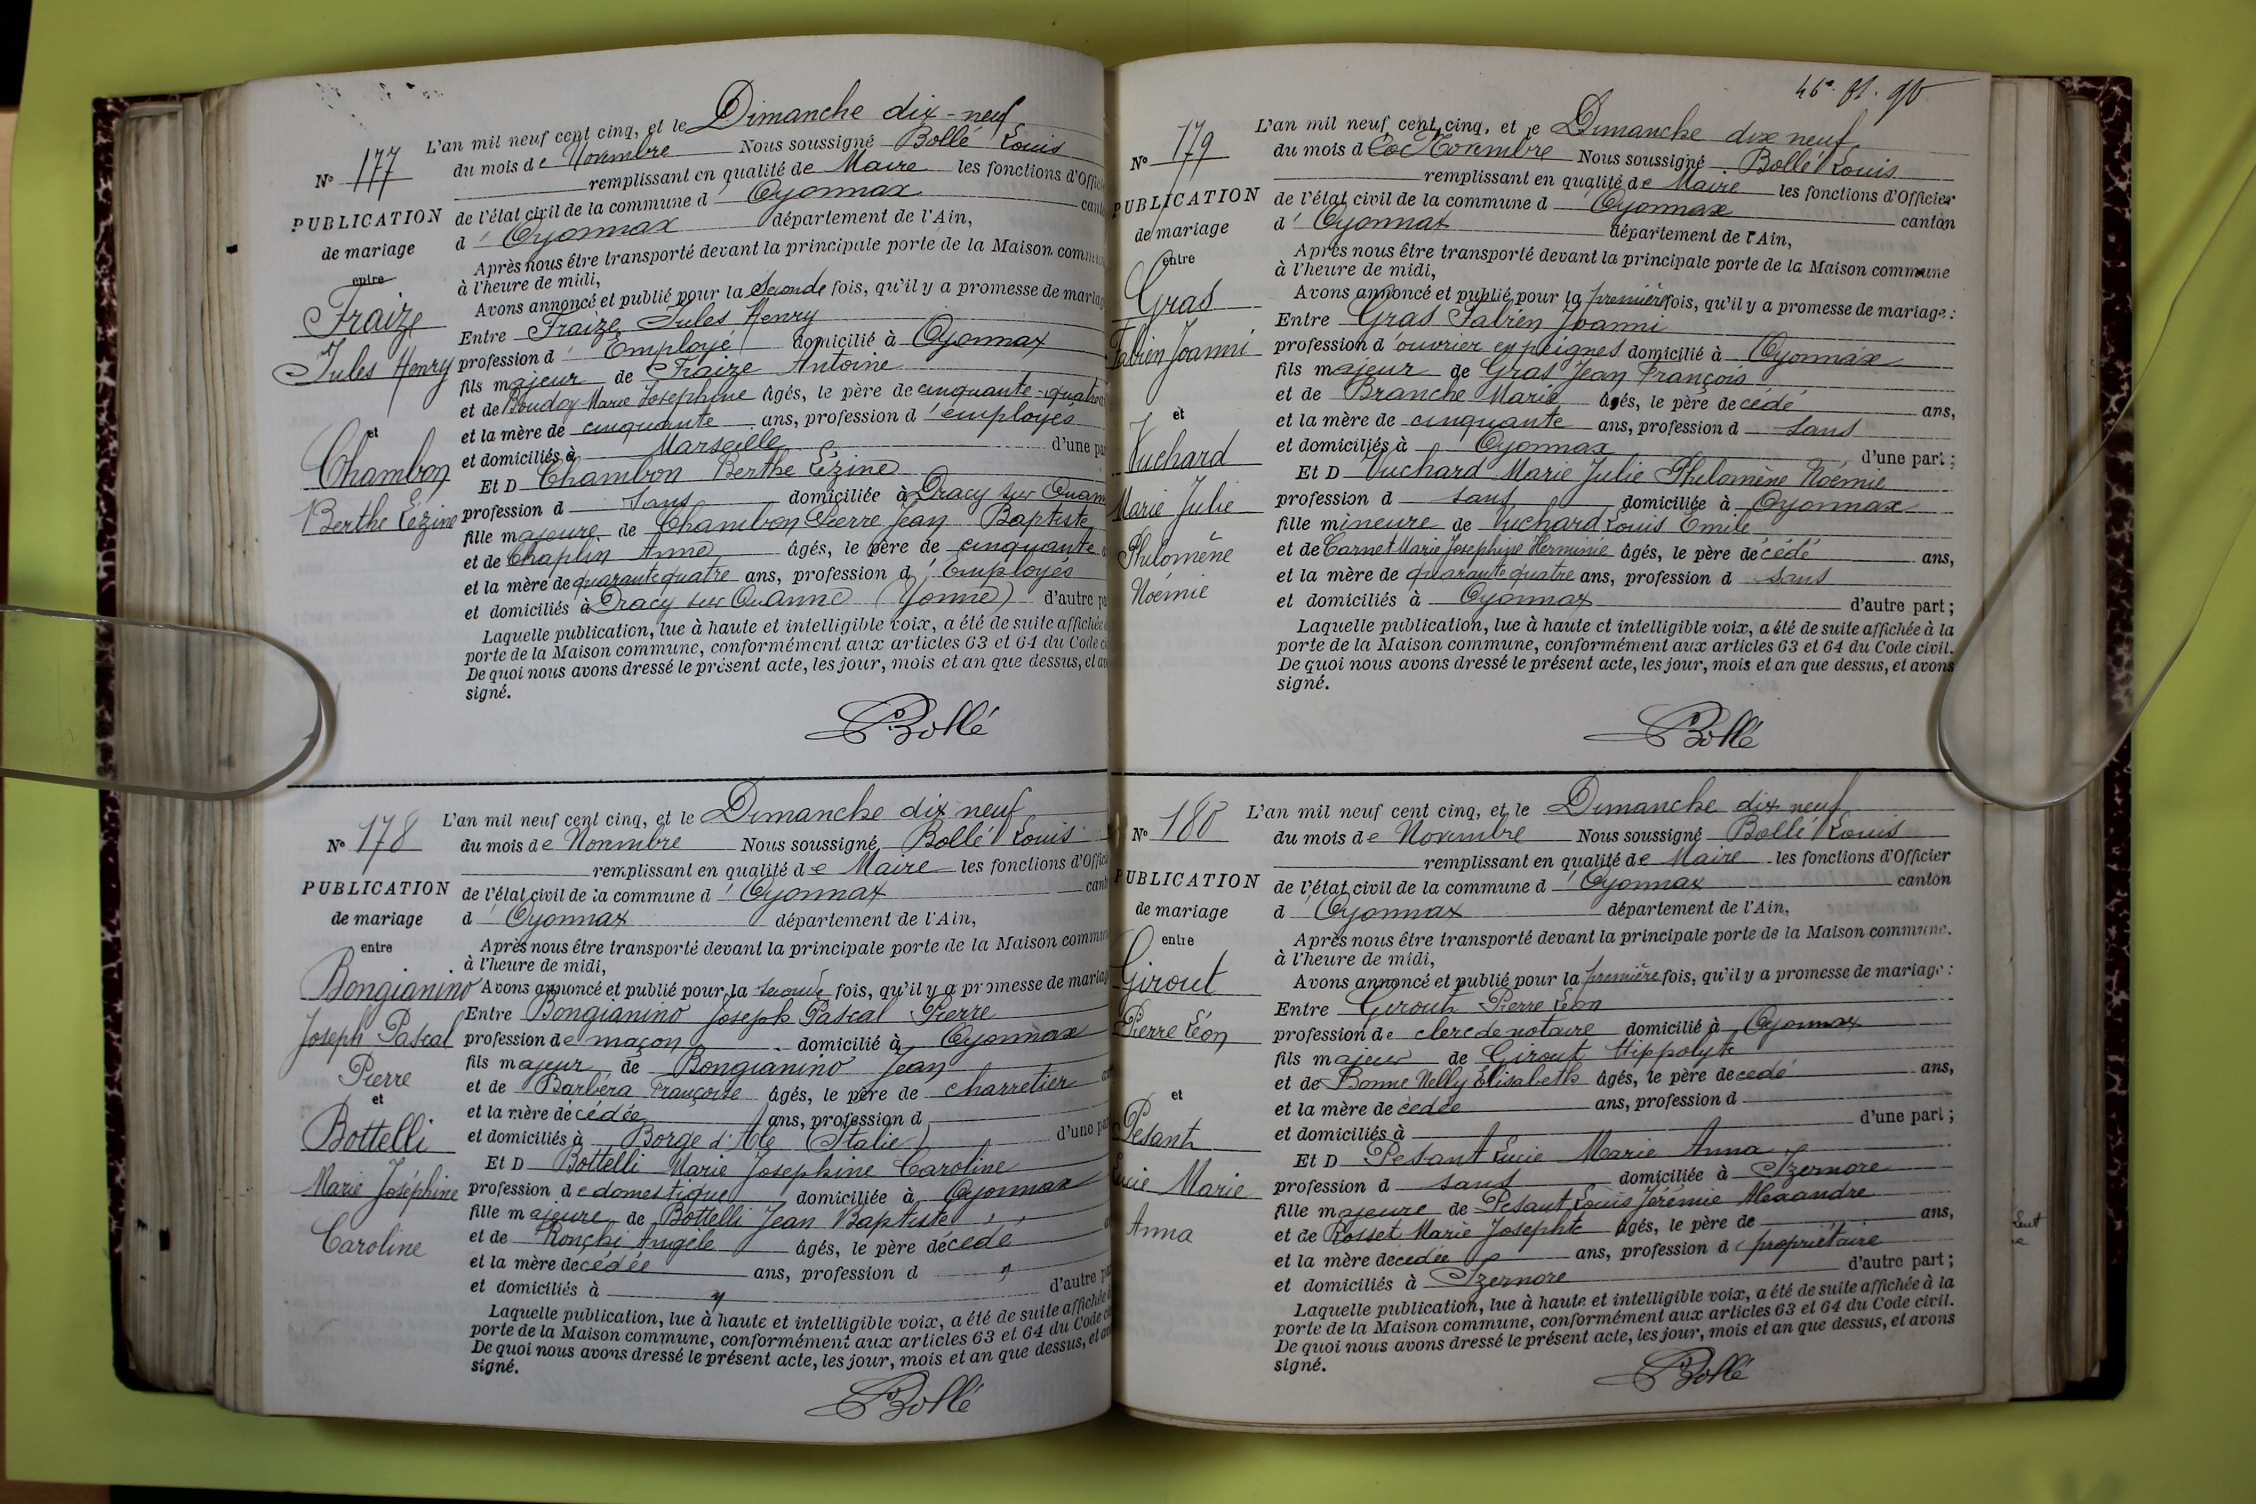 L'an mil neuf cent cinq, et le Dimanche dix-neuf
N° 177 du mois de Novembre Nous soussigné Bollé Louis
remplissant en qualité de Maire les fonctions d'Officier
PUBLICATION de l'état civil de la commune d'Oyonnax canton
de mariage d'Oyonnax département de l'Ain,
entre Après nous être transporté devant la principale porte de la Maison commune
à l'heure de midi,
Fraize Avons annoncé et publié pour la seconde fois, qu'il y a promesse de mariage
Entre Fraize Jules Henry
Jules Henry profession d'Employé domicilié à Oyonnax
fils majeur de Fraize Antoine
et de Boudoy Marie Josephine âgés, le père de cinquante-quatre
et et la mère de cinquante ans, profession d'employés
et domiciliés à Marseille d'une part
Chambon Et D Chambon Berthe Lézine
Berthe Lézine profession d sans domiciliée à Dracy sur Ouanne
fille majeure de Chambon Pierre Jean Baptiste
et de Chaplin Anne âgés, le père de cinquante
et la mère de quarante quatre ans, profession d'Employés
et domiciliés à Dracy sur Ouanne (Yonne) d'autre part
Laquelle publication, lue à haute et intelligible voix, a été de suite affichée
porte de la Maison commune, conformément aux articles 63 et 64 du Code
De quoi nous avons dressé le présent acte, les jour, mois et an que dessus, et
signé.
Bollé
L'an mil neuf cent cinq, et le Dimanche dix neuf
N° 178 du mois de Novembre Nous soussigné Bollé Louis
remplissant en qualité de Maire les fonctions d'Officier
PUBLICATION de l'état civil de la commune d'Oyonnax canton
de mariage d'Oyonnax département de l'Ain,
entre Après nous être transporté devant la principale porte de la Maison commune
à l'heure de midi,
Bongianino Avons annoncé et publié pour la seconde fois, qu'il y a promesse de mariage
Entre Bongianino Joseph Pascal Pierre
Joseph Pascal profession de maçon domicilié à Oyonnax
fils majeur de Bongianino Jean
Pierre et de Barbéra Françoise âgés, le père de charretier
et et la mère décédée ans, profession d
Bottelli et domiciliés à Borge d'Ale (Italie) d'une part
Et D Bottelli Marie Josephine Caroline
Marie Joséphine profession de domestique domiciliée à Oyonnax
fille majeure de Bottelli Jean Baptiste
Caroline et de Ronchi Angèle âgés, le père décédé
et la mère décédée ans, profession d "
et domiciliés à " d'autre part
Laquelle publication, lue à haute et intelligible voix, a été de suite affichée
porte de la Maison commune, conformément aux articles 63 et 64 du Code
De quoi nous avons dressé le présent acte, les jour, mois et an que dessus, et
signé.
Bollé
L'an mil neuf cent cinq, et le Dimanche dix neuf
N° 179 du mois d Novembre Nous soussigné Bollé Louis
remplissant en qualité de Maire les fonctions d'Officier
PUBLICATION de l'état civil de la commune d'Oyonnax canton
de mariage d'Oyonnax département de l'Ain,
entre Après nous être transporté devant la principale porte de la Maison commune
à l'heure de midi,
Gras Avons annoncé et publié pour la première fois, qu'il y a promesse de mariage :
Entre Gras Fabien Joanni
Fabien Joanni profession d'ouvrier en peignes domicilié à Oyonnax
fils majeur de Gras Jean François
et de Branche Marie âgés, le père decédé ans,
et et la mère de cinquante ans, profession d sans
et domiciliés à Oyonnax d'une part ;
Vuchard Et D Vuchard Marie Julie Philomène Noémie
Marie Julie profession d sans domiciliée à Oyonnax
fille mineure de Vuchard Louis Emile
Philomène et de Carnet Marie Josephine Herminie âgés, le père décédé ans,
et la mère de quarante quatre ans, profession d sans
Noémie et domiciliés à Oyonnax d'autre part ;
Laquelle publication, lue à haute et intelligible voix, a été de suite affichée à la
porte de la Maison commune, conformément aux articles 63 et 64 du Code civil.
De quoi nous avons dressé le présent acte, les jour, mois et an que dessus, et avons
signé.
Bollé
L'an mil neuf cent cinq, et le Dimanche dix neuf
N° 180 du mois de Novembre Nous soussigné Bollé Louis
remplissant en qualité de Maire les fonctions d'Officier
PUBLICATION de l'état civil de la commune d'Oyonnax canton
de mariage d'Oyonnax département de l'Ain,
entre Après nous être transporté devant la principale porte de la Maison commune.
à l'heure de midi,
Girout Avons annoncé et publié pour la première fois, qu'il y a promesse de mariage :
Entre Girout Pierre Léon
Pierre Léon profession de clerc de notaire domicilié à Oyonnax
fils majeur de Girout Hippolyte
et de Bonne Nelly Elisabeth âgés, le père decedé ans,
et et la mère decedée ans, profession d
Pesant et domiciliés à d'une part ;
Et D Pesant Lucie Marie Anna
Lucie Marie profession d sans domiciliée à Izernore
fille majeure de Pesant Louis Jérémie Alexandre
Anna et de Rosset Marie Josephte âgés, le père de ans,
et la mère decedée ans, profession de propriétaire
et domiciliés à Izernore d'autre part ;
Laquelle publication, lue à haute et intelligible voix, a été de suite affichée à la
porte de la Maison commune, conformément aux articles 63 et 64 du Code civil.
De quoi nous avons dressé le présent acte, les jour, mois et an que dessus, et avons
signé.
Bollé